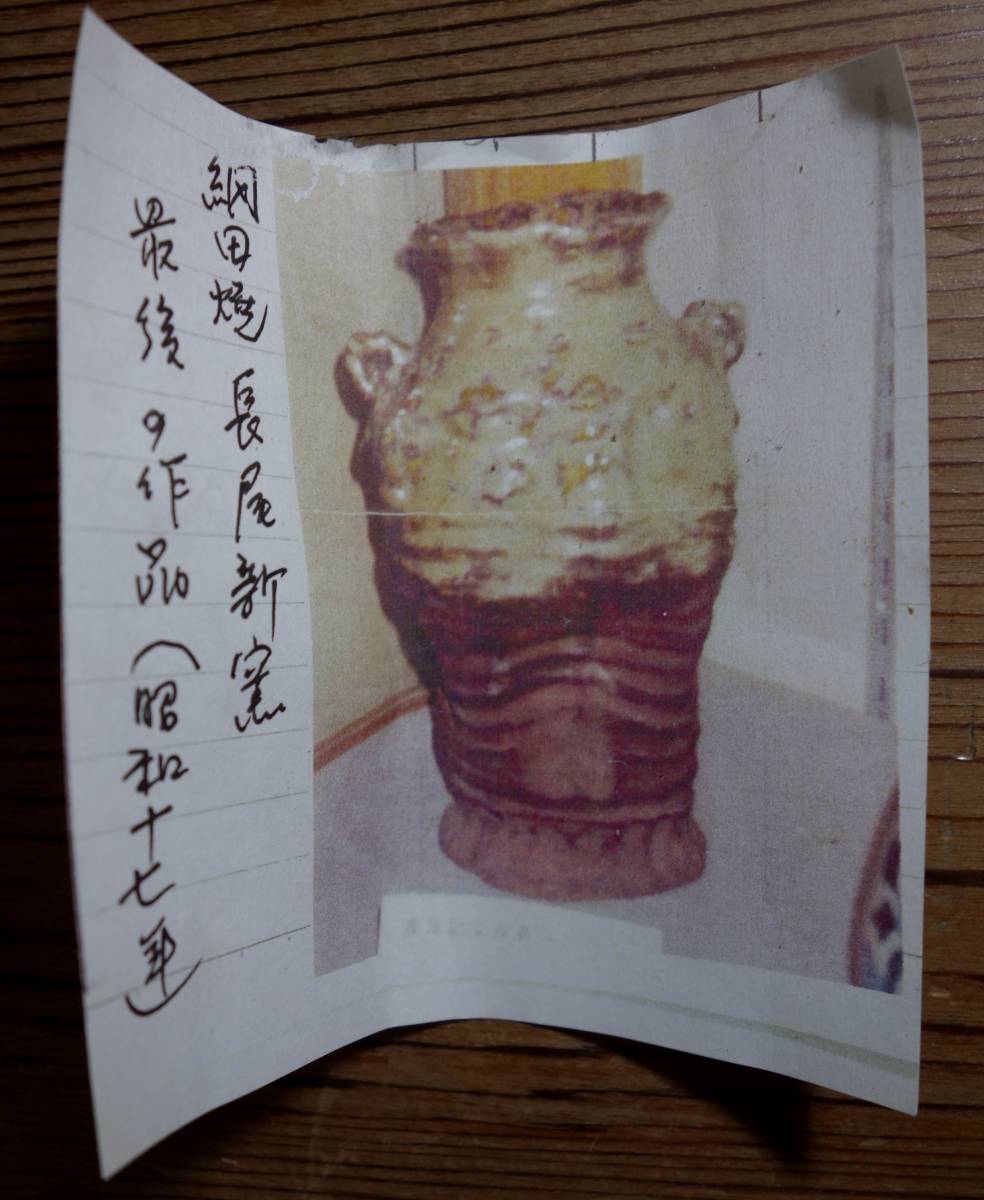 網田焼 長尾新窯
最後の作品(昭和十七年)